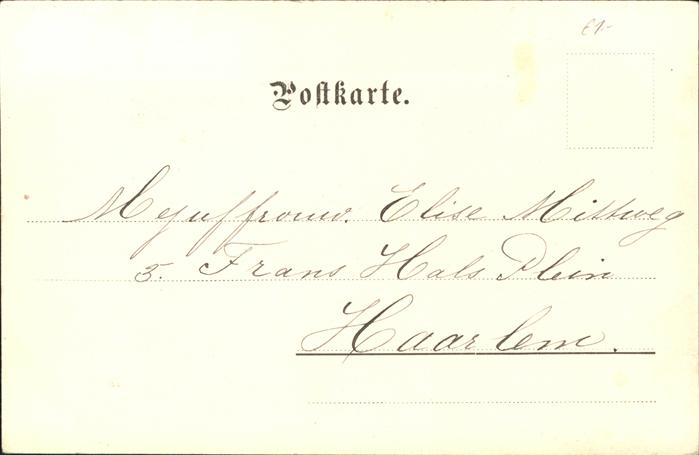 €1-
Postkarte.
Mejuffrouw. Elise Mittweg
5. Frans Hals Plein
Haarlem.